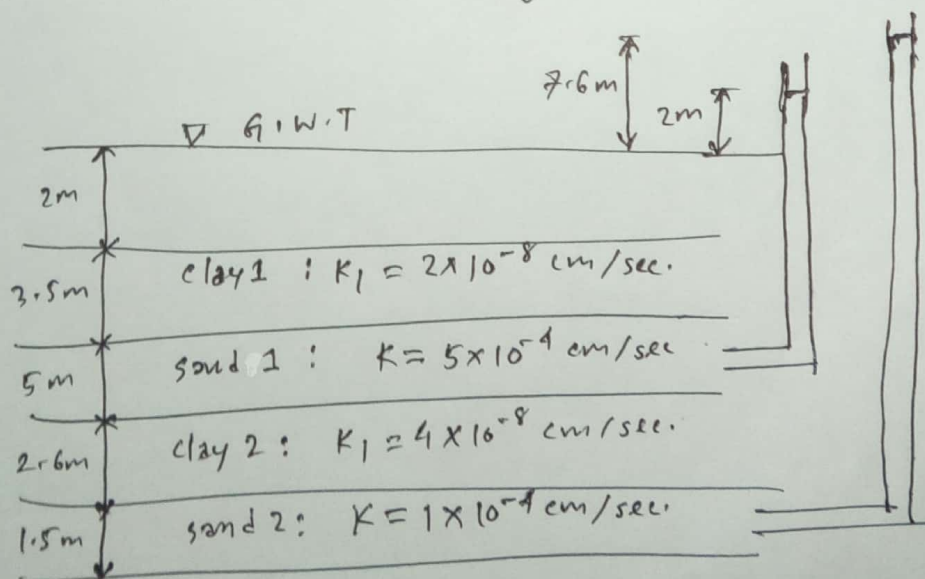 7.6m
2m
▽ G.W.T
2m
clay1 : K₁ = 2x10⁻⁸ cm/sec.
3.5m
sand 1 : K = 5x10⁻⁴ cm/sec
5m
clay 2 : K₁ = 4x10⁻⁸ cm/sec.
2.6m
sand 2 : K = 1x10⁻⁴ cm/sec.
1.5m